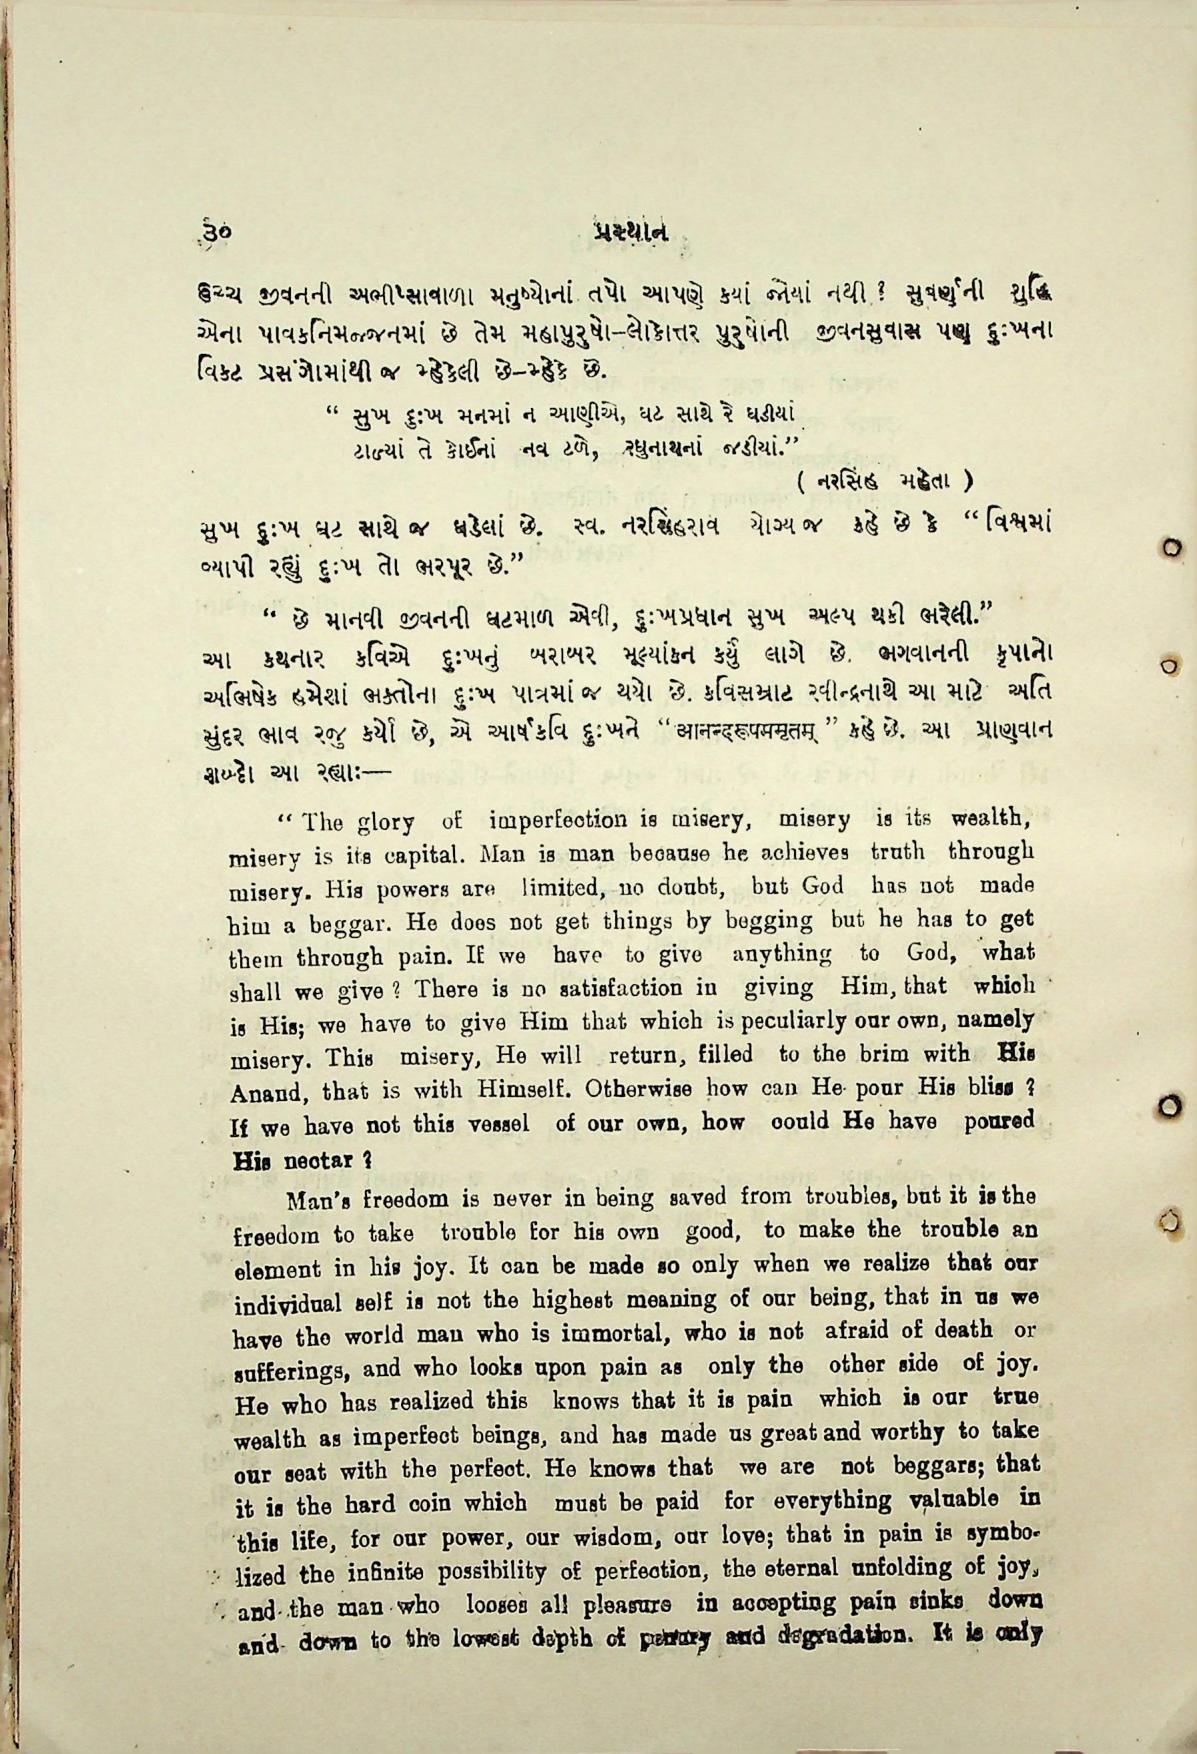 ૩૦ પ્રસ્થાન
ઉચ્ચ જીવનની અભીપ્સાવાળા મનુષ્યોનાં તપો આપણે કયાં જોયાં નથી ? સુવર્ણની શુદ્ધિ
એના પાવકનિમજ્જનમાં છે તેમ મહાપુરુષો–લોકોત્તર પુરુષોની જીવનસુવાસ પણ દુઃખના
વિકટ પ્રસંગોમાંથી જ મ્હેકેલી છે–મ્હેકે છે.
“ સુખ દુઃખ મનમાં ન આણીએ, ઘટ સાથે રે ઘડીયાં
ટાળ્યાં તે કોઈનાં નવ ટળે, રઘુનાથનાં જડીયાં.”
( નરસિંહ મહેતા )
સુખ દુઃખ ઘટ સાથે જ ઘડેલાં છે. સ્વ. નરસિંહરાવ યોગ્ય જ કહે છે કે “ વિશ્વમાં
વ્યાપી રહ્યું દુઃખ તો ભરપૂર છે.”
“ છે માનવી જીવનની ઘટમાળ એવી, દુઃખપ્રધાન સુખ અલ્પ થકી ભરેલી.”
આ કથનાર કવિએ દુઃખનું બરાબર મૂલ્યાંકન કર્યું લાગે છે. ભગવાનની કૃપાનો
અભિષેક હમેશાં ભક્તોના દુઃખ પાત્રમાં જ થયો છે. કવિસમ્રાટ રવીન્દ્રનાથે આ માટે અતિ
સુંદર ભાવ રજુ કર્યો છે, એ આર્ષકવિ દુઃખને “ आनन्दरूपममृतम् ” કહે છે. આ પ્રાણવાન
શબ્દો આ રહ્યાઃ—
“ The glory of imperfection is misery, misery is its wealth,
misery is its capital. Man is man because he achieves truth through
misery. His powers are limited, no doubt, but God has not made
him a beggar. He does not get things by begging but he has to get
them through pain. If we have to give anything to God, what
shall we give ? There is no satisfaction in giving Him, that which
is His; we have to give Him that which is peculiarly our own, namely
misery. This misery, He will return, filled to the brim with His
Anand, that is with Himself. Otherwise how can He pour His bliss ?
If we have not this vessel of our own, how could He have poured
His nectar ?
Man's freedom is never in being saved from troubles, but it is the
freedom to take trouble for his own good, to make the trouble an
element in his joy. It can be made so only when we realize that our
individual self is not the highest meaning of our being, that in us we
have the world man who is immortal, who is not afraid of death or
sufferings, and who looks upon pain as only the other side of joy.
He who has realized this knows that it is pain which is our true
wealth as imperfect beings, and has made us great and worthy to take
our seat with the perfect. He knows that we are not beggars; that
it is the hard coin which must be paid for everything valuable in
this life, for our power, our wisdom, our love; that in pain is symbo-
lized the infinite possibility of perfection, the eternal unfolding of joy,
and the man who looses all pleasure in accepting pain sinks down
and down to the lowest depth of penury and degradation. It is only